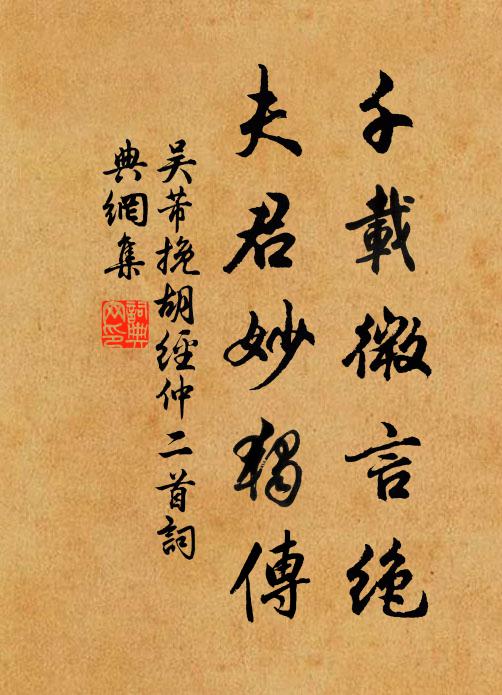 千載微言絶
夫君妙獨傳
吴芾挽胡經仲二首詞
典網集
詞典網印